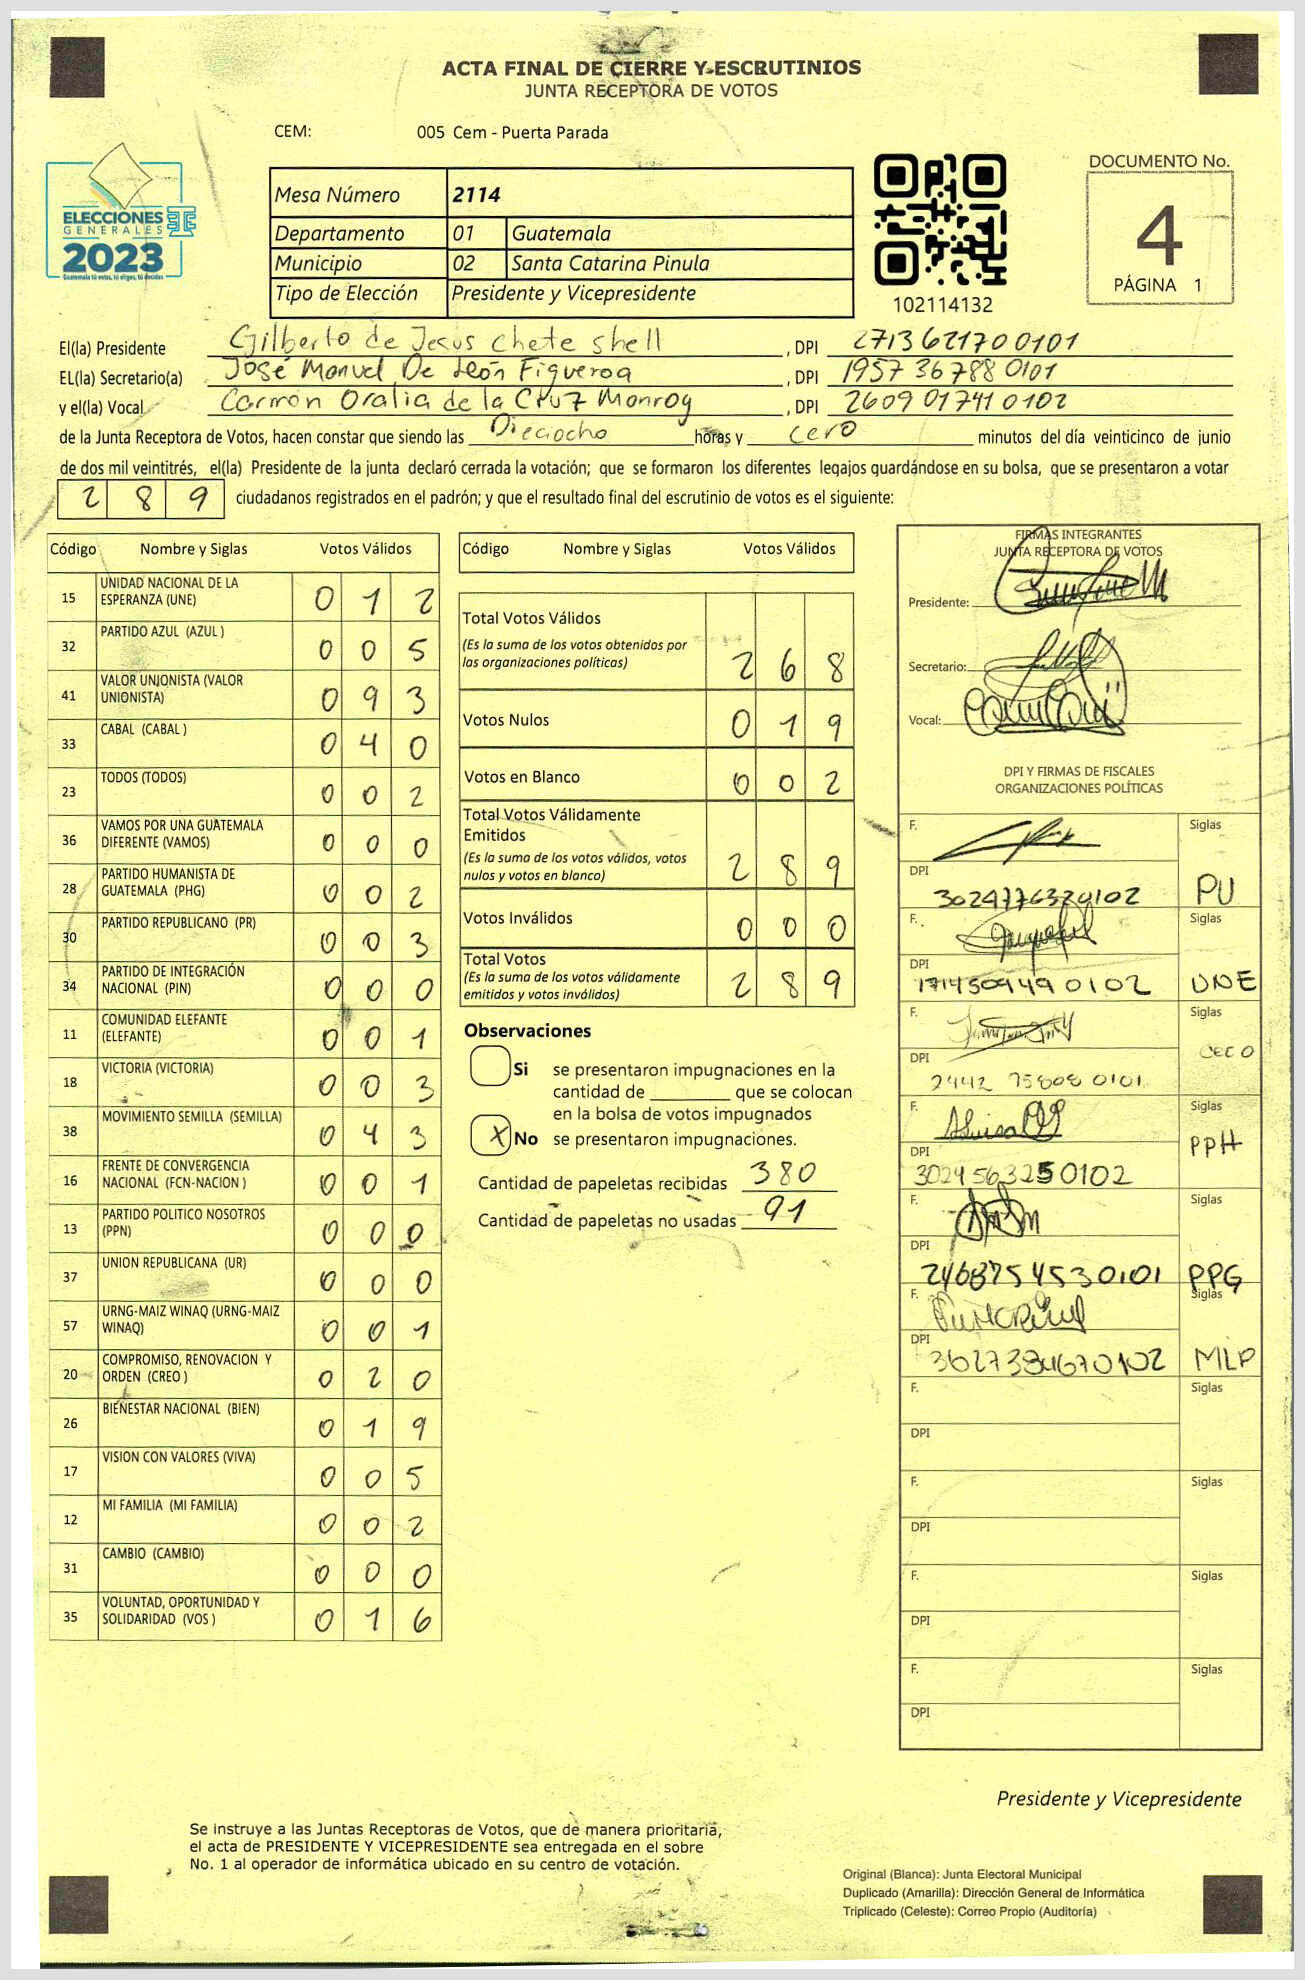 ACTA FINAL DE CIERRE Y ESCRUTINIOS
JUNTA RECEPTORA DE VOTOS
CEM: 005 Cem - Puerta Parada
ELECCIONES
GENERALES
2023
Guatemala tú votas, tú eliges, tú decides
Mesa Número 2114
Departamento 01 Guatemala
Municipio 02 Santa Catarina Pinula
Tipo de Elección Presidente y Vicepresidente
102114132
DOCUMENTO No.
4
PÁGINA 1
El(la) Presidente Gilberto de Jesus chete shell, DPI 2713621700101
EL(la) Secretario(a) José Manuel De León Figueroa, DPI 1957367880101
y el(la) Vocal Carmen Oralia de la Cruz Monroy, DPI 2609017410102
de la Junta Receptora de Votos, hacen constar que siendo las Dieciocho horas y cero minutos del día veinticinco de junio
de dos mil veintitrés, el(la) Presidente de la junta declaró cerrada la votación; que se formaron los diferentes legajos guardándose en su bolsa, que se presentaron a votar
289 ciudadanos registrados en el padrón; y que el resultado final del escrutinio de votos es el siguiente:
Código Nombre y Siglas Votos Válidos
15 UNIDAD NACIONAL DE LA ESPERANZA (UNE) 012
32 PARTIDO AZUL (AZUL ) 005
41 VALOR UNIONISTA (VALOR UNIONISTA) 093
33 CABAL (CABAL ) 040
23 TODOS (TODOS) 002
36 VAMOS POR UNA GUATEMALA DIFERENTE (VAMOS) 000
28 PARTIDO HUMANISTA DE GUATEMALA (PHG) 002
30 PARTIDO REPUBLICANO (PR) 003
34 PARTIDO DE INTEGRACIÓN NACIONAL (PIN) 000
11 COMUNIDAD ELEFANTE (ELEFANTE) 001
18 VICTORIA (VICTORIA) 003
38 MOVIMIENTO SEMILLA (SEMILLA) 043
16 FRENTE DE CONVERGENCIA NACIONAL (FCN-NACION ) 001
13 PARTIDO POLITICO NOSOTROS (PPN) 000
37 UNION REPUBLICANA (UR) 000
57 URNG-MAIZ WINAQ (URNG-MAIZ WINAQ) 001
20 COMPROMISO, RENOVACION Y ORDEN (CREO ) 020
26 BIENESTAR NACIONAL (BIEN) 019
17 VISION CON VALORES (VIVA) 005
12 MI FAMILIA (MI FAMILIA) 002
31 CAMBIO (CAMBIO) 000
35 VOLUNTAD, OPORTUNIDAD Y SOLIDARIDAD (VOS ) 016
Código Nombre y Siglas Votos Válidos
Total Votos Válidos
(Es la suma de los votos obtenidos por las organizaciones políticas) 268
Votos Nulos 019
Votos en Blanco 002
Total Votos Válidamente Emitidos
(Es la suma de los votos válidos, votos nulos y votos en blanco) 289
Votos Inválidos 000
Total Votos
(Es la suma de los votos válidamente emitidos y votos inválidos) 289
Observaciones
Si se presentaron impugnaciones en la
cantidad de ________ que se colocan
en la bolsa de votos impugnados
X No se presentaron impugnaciones.
Cantidad de papeletas recibidas 380
Cantidad de papeletas no usadas 91
FIRMAS INTEGRANTES
JUNTA RECEPTORA DE VOTOS
Presidente:
Secretario:
Vocal:
DPI Y FIRMAS DE FISCALES
ORGANIZACIONES POLÍTICAS
F. Siglas
DPI PU
F. Siglas
DPI 1714509490102 UNE
F. Siglas
DPI 2442 75808 0101
F. Siglas
DPI 3024563250102 PPH
F. Siglas
DPI 2468754530101 PPG
F. Siglas
DPI 3627384670102 MLP
F. Siglas
DPI
F. Siglas
DPI
F. Siglas
DPI
F. Siglas
DPI
Presidente y Vicepresidente
Se instruye a las Juntas Receptoras de Votos, que de manera prioritaria,
el acta de PRESIDENTE Y VICEPRESIDENTE sea entregada en el sobre
No. 1 al operador de informática ubicado en su centro de votación.
Original (Blanca): Junta Electoral Municipal
Duplicado (Amarilla): Dirección General de Informática
Triplicado (Celeste): Correo Propio (Auditoría)